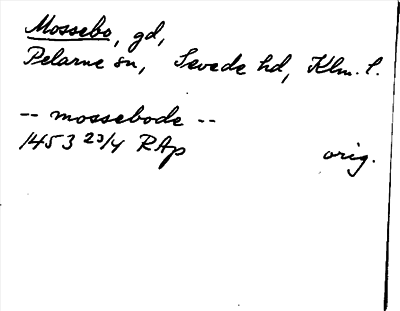 Mossebo, gd,
Pelarne sn, Sevede hd, Klm. l.
-- mossebode --
1453 23/4 RAp orig.